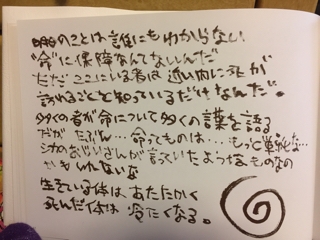 明日のことは誰にもわからない
“命”に保障なんてないんだ
ただここにいる者は 近い内に死が
訪れることを知っているだけなんだ”。
多くの者が命について多くの言葉を語る
だが たぶん…命ってものは…もっと単純な…
シカのおじいさんが言っていたようなものなの
かもしれないな
生きている体は あたたかく
死んだ体は 冷たくなる。